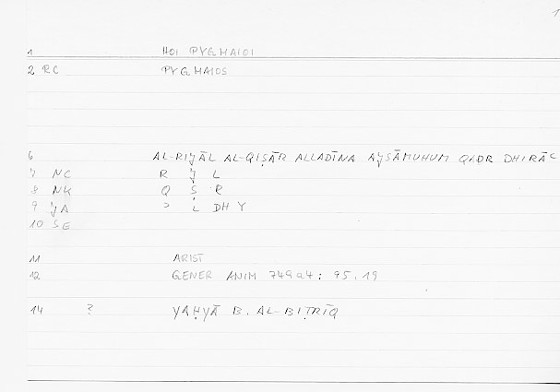 1
1 HOI PYGMAIOI
2 RC PYGMAIOS
6 AL-RIJĀL AL-QIṢĀR ALLADĪNA AJSĀMUHUM QADR DHIRĀʿ
7 NC R J L
8 NK Q Ṣ R
9 JA ʾ L DH Y
10 SE
11 ARIST
12 GENER ANIM 749a4 ; 95.19
14 ? YAḤYĀ B. AL-BIṬRĪQ